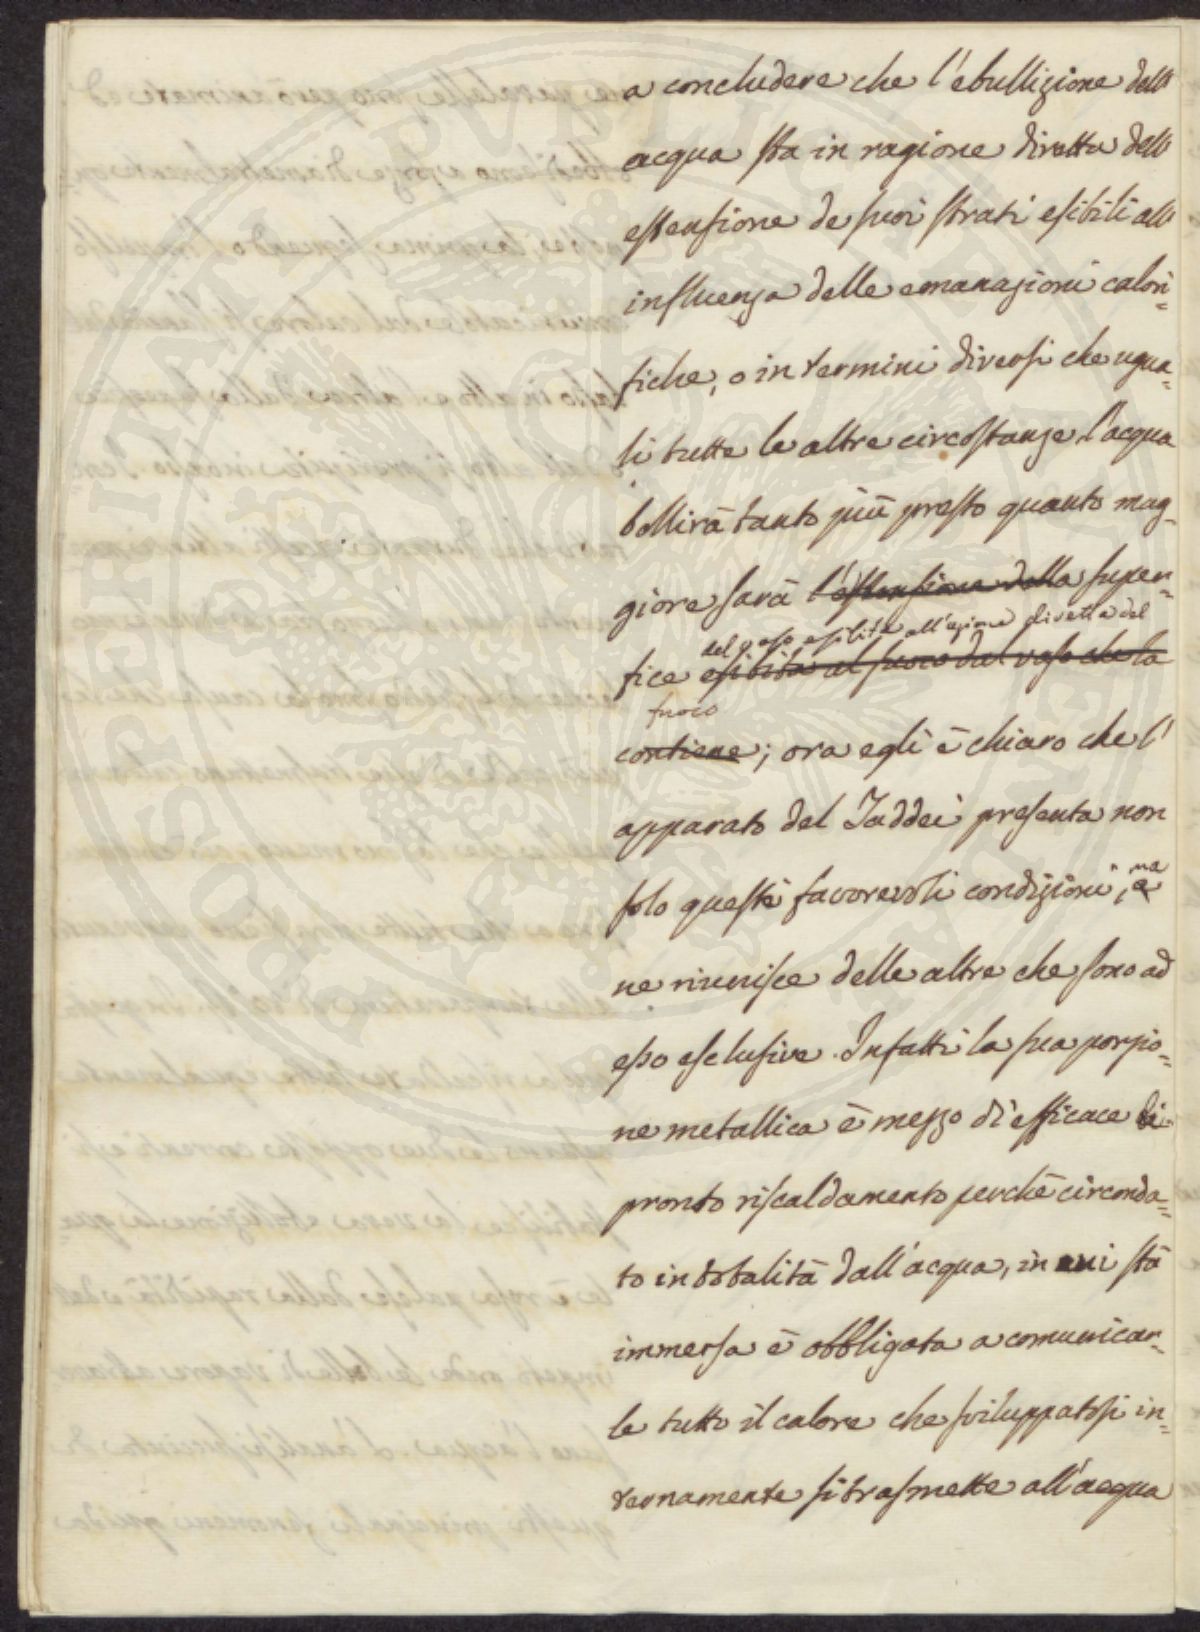 a concludere che l'ebullizione dell
acqua sta in ragione diretta dell
estensione de suoi strati esibiti all
influenza delle emanazioni calori=
fiche, o in termini diversi che ugua=
li tutte le altre circostanze l'acqua
bollirà tanto più presto quanto mag=
giore sarà l'estensione della super=
del vaso esibita all'azione diretta del
fice esibita al fuoco dal vaso che la
fuoco
contiene; ora egli è chiaro che l'
apparato del Taddei presenta non
ma
solo queste favorevoli condizioni, e
ne riunisce delle altre che sono ad
esso esclusive. Infatti la sua porzio=
ne metallica è mezzo di efficace di
pronto riscaldamento perchè circonda=
to in totalità dall'acqua, in cui stà
immersa è obbligata a comunicar=
le tutto il calore che sviluppatosi in=
ternamente si trasmette all'acqua
PROSPERITATI PVBLICAE